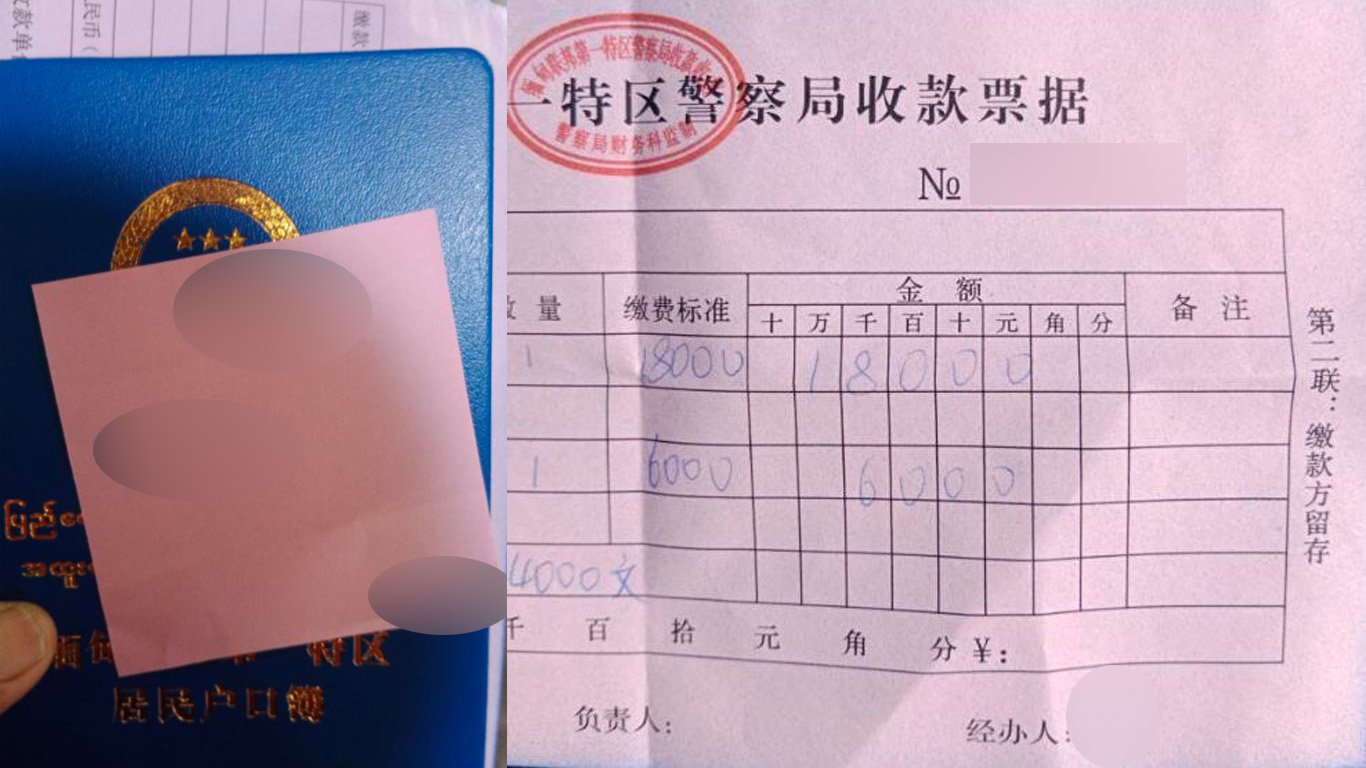 缴款
民币（
收款单
ပြည်
အထူး
特区
居民户口簿
缅甸掸邦第一特区警察局收款
警察局财务科监制
一特区警察局收款票据
№
量 缴费标准 金 额 备 注
十 万 千 百 十 元 角 分
1 18000 1 8 0 0 0
1 6000 6 0 0 0
4000
千 百 拾 元 角 分 ¥：
负责人： 经办人：
第二联：缴款方留存